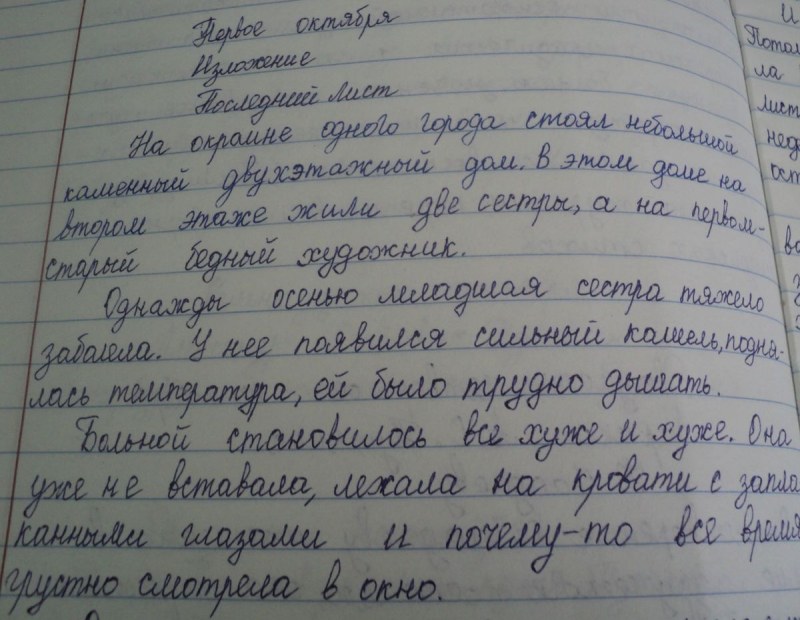 Первое октября
Изложение
Последний лист
На окраине одного города стоял небольшой
каменный двухэтажный дом. В этом доме на
втором этаже жили две сестры, а на первом-
старый бедный художник.
Однажды осенью младшая сестра тяжело
заболела. У нее появился сильный кашель, подня-
лась температура, ей было трудно дышать.
Больной становилось все хуже и хуже. Она
уже не вставала, лежала на кровати с запла
канными глазами и почему-то все время
грустно смотрела в окно.
Потом
ла
лист
нед
ост